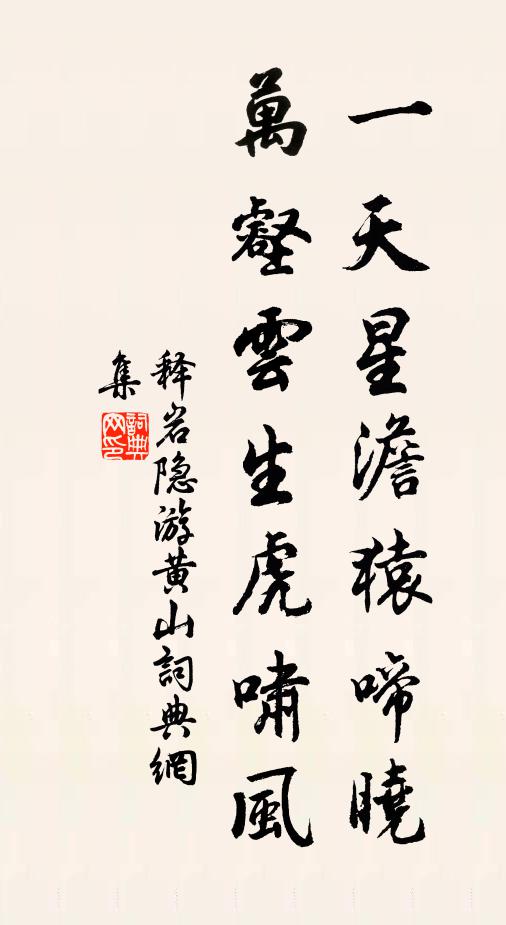 一天星澹猿啼曉
萬壑雲生虎嘯風
释岩隐游黄山詞典網
集
詞典网印